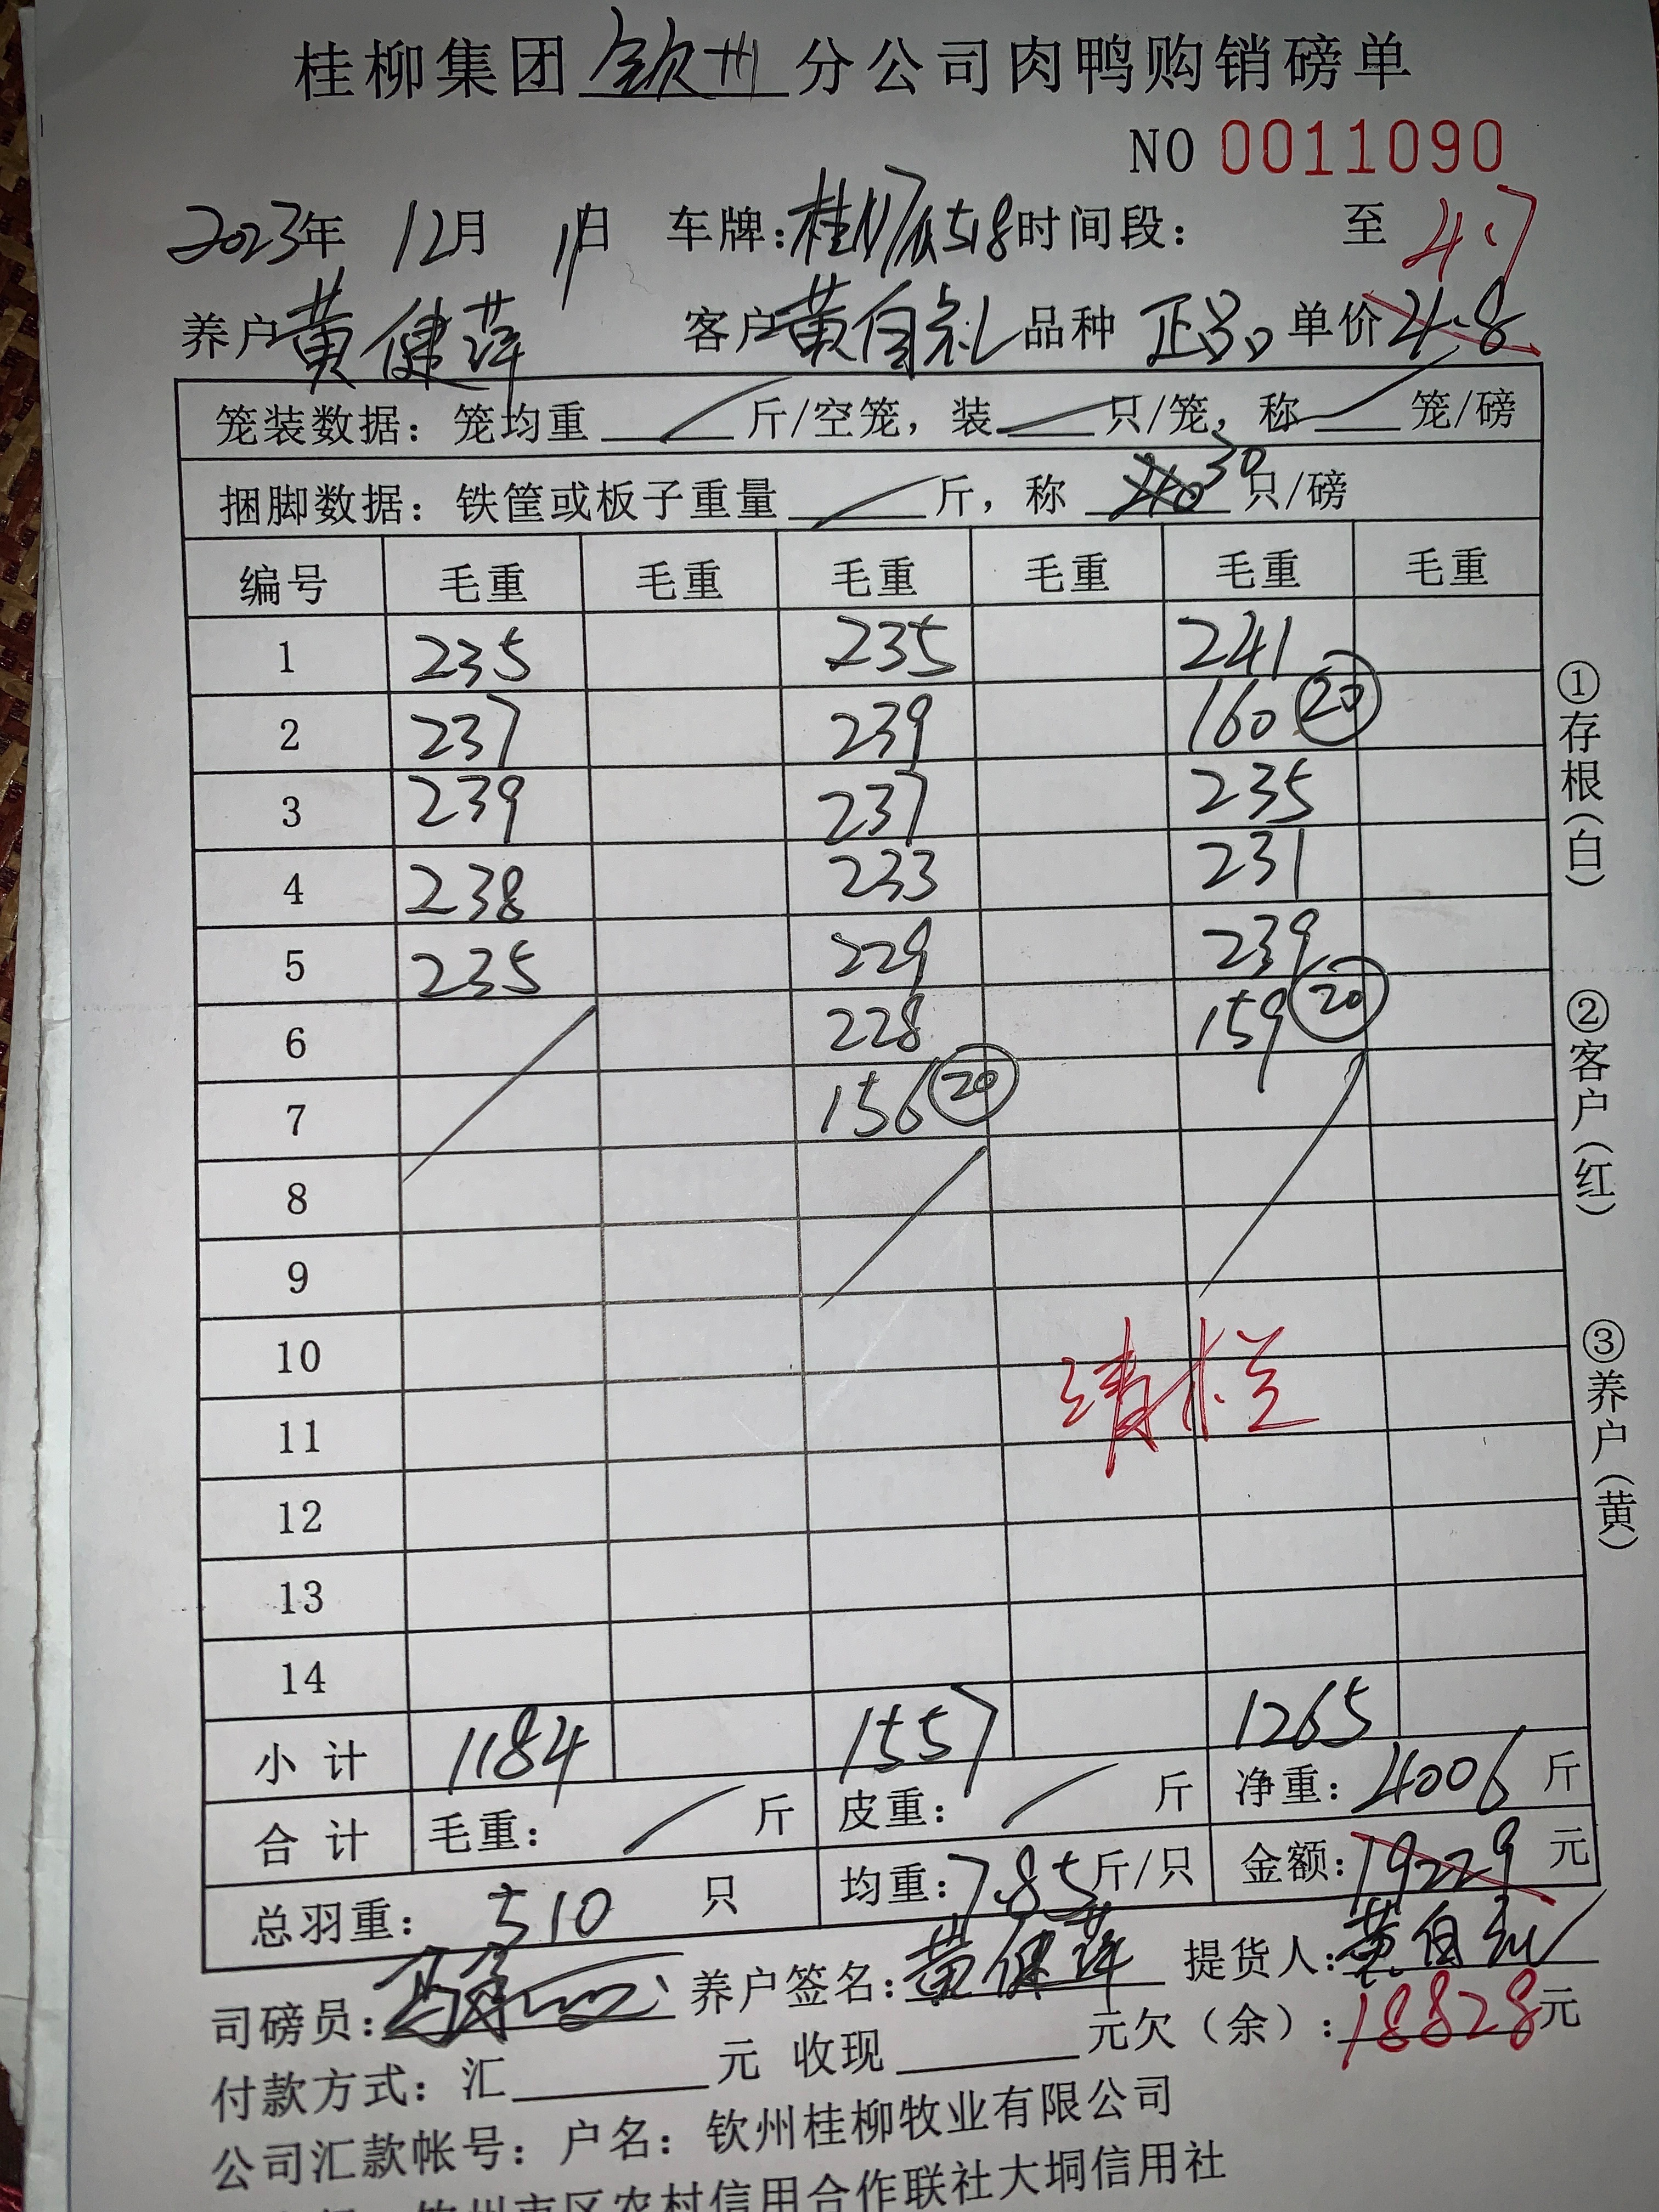 桂柳集团 钦州 分公司肉鸭购销磅单
NO 0011090
2023年 12月 日 车牌:桂N 518 时间段: 至 4.7
养户 黄健萍 客户 黄自礼 品种 正品 单价 4.8
笼装数据: 笼均重 / 斤/空笼, 装 / 只/笼, 称 / 笼/磅
捆脚数据: 铁筐或板子重量 / 斤, 称 30 只/磅
编号 毛重 毛重 毛重 毛重 毛重 毛重
1 235 235 241
2 237 239 160 20
3 239 237 235
4 238 233 231
5 235 229 239
6 228 159 20
7 156 20
8
9
10
清栏
11
12
13
14
小计 1184 1557 1265
合计 毛重: / 斤 皮重: / 斤 净重: 4006 斤
总羽重: 510 只 均重: 7.85 斤/只 金额: 19229 元
司磅员: 养户签名: 黄健萍 提货人: 黄自礼
付款方式: 汇 元 收现 元欠(余): 18828 元
公司汇款帐号: 户名: 钦州桂柳牧业有限公司
钦州市区农村信用合作联社大垌信用社
①存根(白)
②客户(红)
③养户(黄)